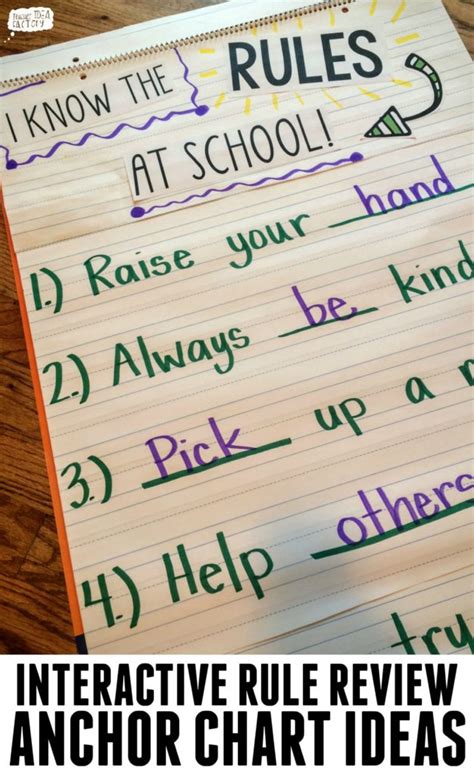 I KNOW THE RULES
AT SCHOOL!
1.) Raise your hand
2.) Always be kind
3.) Pick up a
4.) Help others
try
INTERACTIVE RULE REVIEW
ANCHOR CHART IDEAS